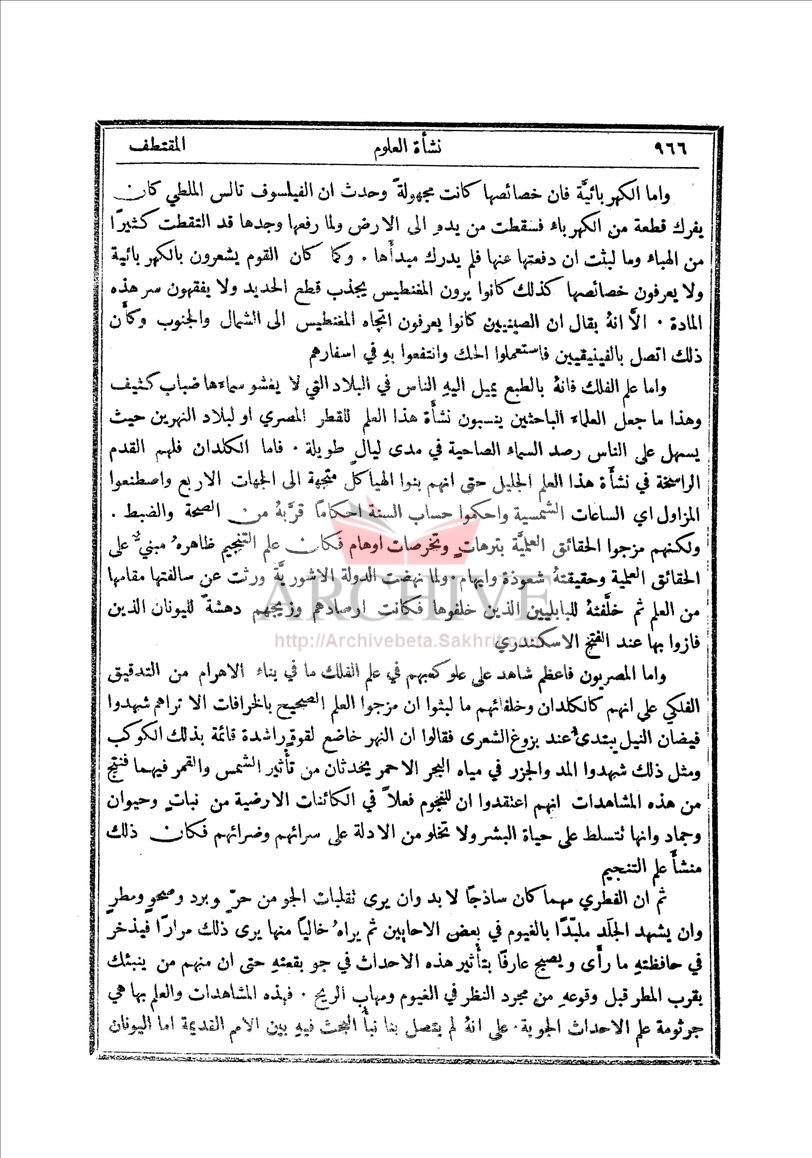 ٩٦٦ نشأة العلوم المقتطف
واما الكهربائيَّة فان خصائصها كانت مجهولةً وحدث ان الفيلسوف تالس الملطي كان
يفرك قطعة من الكهرباء فسقطت من يدهِ الى الارض ولما رفعها وجدها قد التقطت كثيرًا
من الهباء وما لبثت ان دفعتها عنها فلم يدرك مبدأها . وكما كان القوم يشعرون بالكهربائية
ولا يعرفون خصائصها كذلك كانوا يرون المغنطيس يجذب قطع الحديد ولا يفقهون سر هذه
المادة . الَّا انهُ يقال ان الصينيين كانوا يعرفون اتجاه المغنطيس الى الشمال والجنوب وكأن
ذلك اتصل بالفينيقيين فاستعملوا الحك وانتفعوا بهِ في اسفارهم
واما علم الفلك فانهُ بالطبع يميل اليهِ الناس في البلاد التي لا يغشو سماءها ضباب كثيف
وهذا ما جعل العلماء الباحثين ينسبون نشأة هذا العلم للقطر المصري او لبلاد النهرين حيث
يسهل على الناس رصد السماء الصاحية في مدى ليالٍ طويلة . فاما الكلدان فلهم القدم
الراسخة في نشأة هذا العلم الجليل حتى انهم بنوا الهياكل متجهة الى الجهات الاربع واصطنعوا
المزاول اي الساعات الشمسية واحكموا حساب السنة احكامًا قرَّبهُ من الصحة والضبط .
ولكنهم مزجوا الحقائق العلميَّة بترهاتٍ وتخرصات اوهام فكان علم التنجيم ظاهرهُ مبنيٌّ على
الحقائق العلمية وحقيقتهُ شعوذة وايهام . ولما نهضت الدولة الاشوريَّة ورثت عن سالفتها مقامها
من العلم ثم خلَّفتهُ للبابليين الذين خلفوها فكانت ارصادهم وزيجهم دهشةً لليونان الذين
فازوا بها عند الفتح الاسكندري
واما المصريون فاعظم شاهد على علو كعبهم في علم الفلك ما في بناء الاهرام من التدقيق
الفلكي على انهم كالكلدان وخلفائهم ما لبثوا ان مزجوا العلم الصحيح بالخرافات الا تراهم شهدوا
فيضان النيل يبتدئ عند بزوغ الشعرى فقالوا ان النهر خاضع لقوةٍ راشدة قائمة بذلك الكوكب
ومثل ذلك شهدوا المد والجزر في مياه البحر الاحمر يحدثان من تأثير الشمس والقمر فيهما فنتج
من هذه المشاهدات انهم اعتقدوا ان للنجوم فعلاً في الكائنات الارضية من نباتٍ وحيوان
وجماد وانها تتسلط على حياة البشر ولا تخلو من الادلة على سرائهم وضرائهم فكان ذلك
منشأ علم التنجيم
ثم ان الفطري مهما كان ساذجًا لا بد وان يرى تقلبات الجو من حرٍّ وبرد وصحوٍ ومطرٍ
وان يشهد الجلَد ملبّدًا بالغيوم في بعض الاحايين ثم يراهُ خاليًا منها يرى ذلك مرارًا فيذخر
في حافظتهِ ما رأى ويصبح عارفًا بتأثير هذه الاحداث في جو بقعتهِ حتى ان منهم من ينبئك
بقرب المطر قبل وقوعهِ من مجرد النظر في الغيوم ومهاب الريح . فهذه المشاهدات والعلم بها هي
جرثومة علم الاحداث الجوية . على انهُ لم يتصل بنا نبأ البحث فيهِ بين الامم القديمة اما اليونان
ARCHIVE
http://Archivebeta.Sakhrit.com